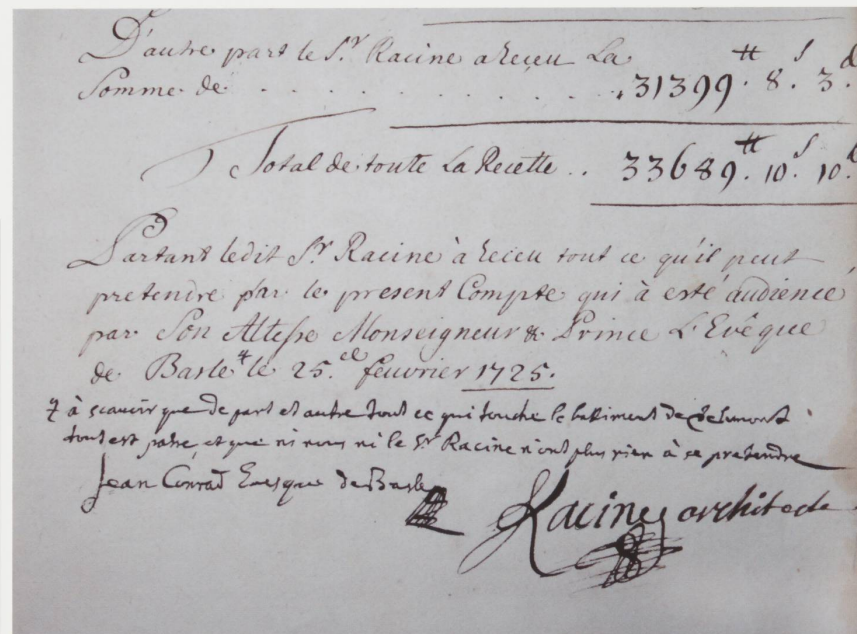 D'autre part le S.r Racine a receu La
Somme de . . . . . . . . . . . . 31399.₶ 8.s 3.d
Total de toute La Recette .. 33689.₶ 10.s 10.d
Partant ledit S.r Racine à receu tout ce qu'il peut
pretendre par le present Compte qui à esté audiencé
par Son Altesse Monseigneur & Prince L'Evêque
de Basle ‡ le 25.e feuvrier 1725.
‡ à scauoir que de part et autre tout ce qui touche le battiment de Delemont
tout est paÿe, et que ni nous ni le Sr Racine n'ont plus rien à se pretendre
Jean Conrad Euesque de Basle
Racine architecte